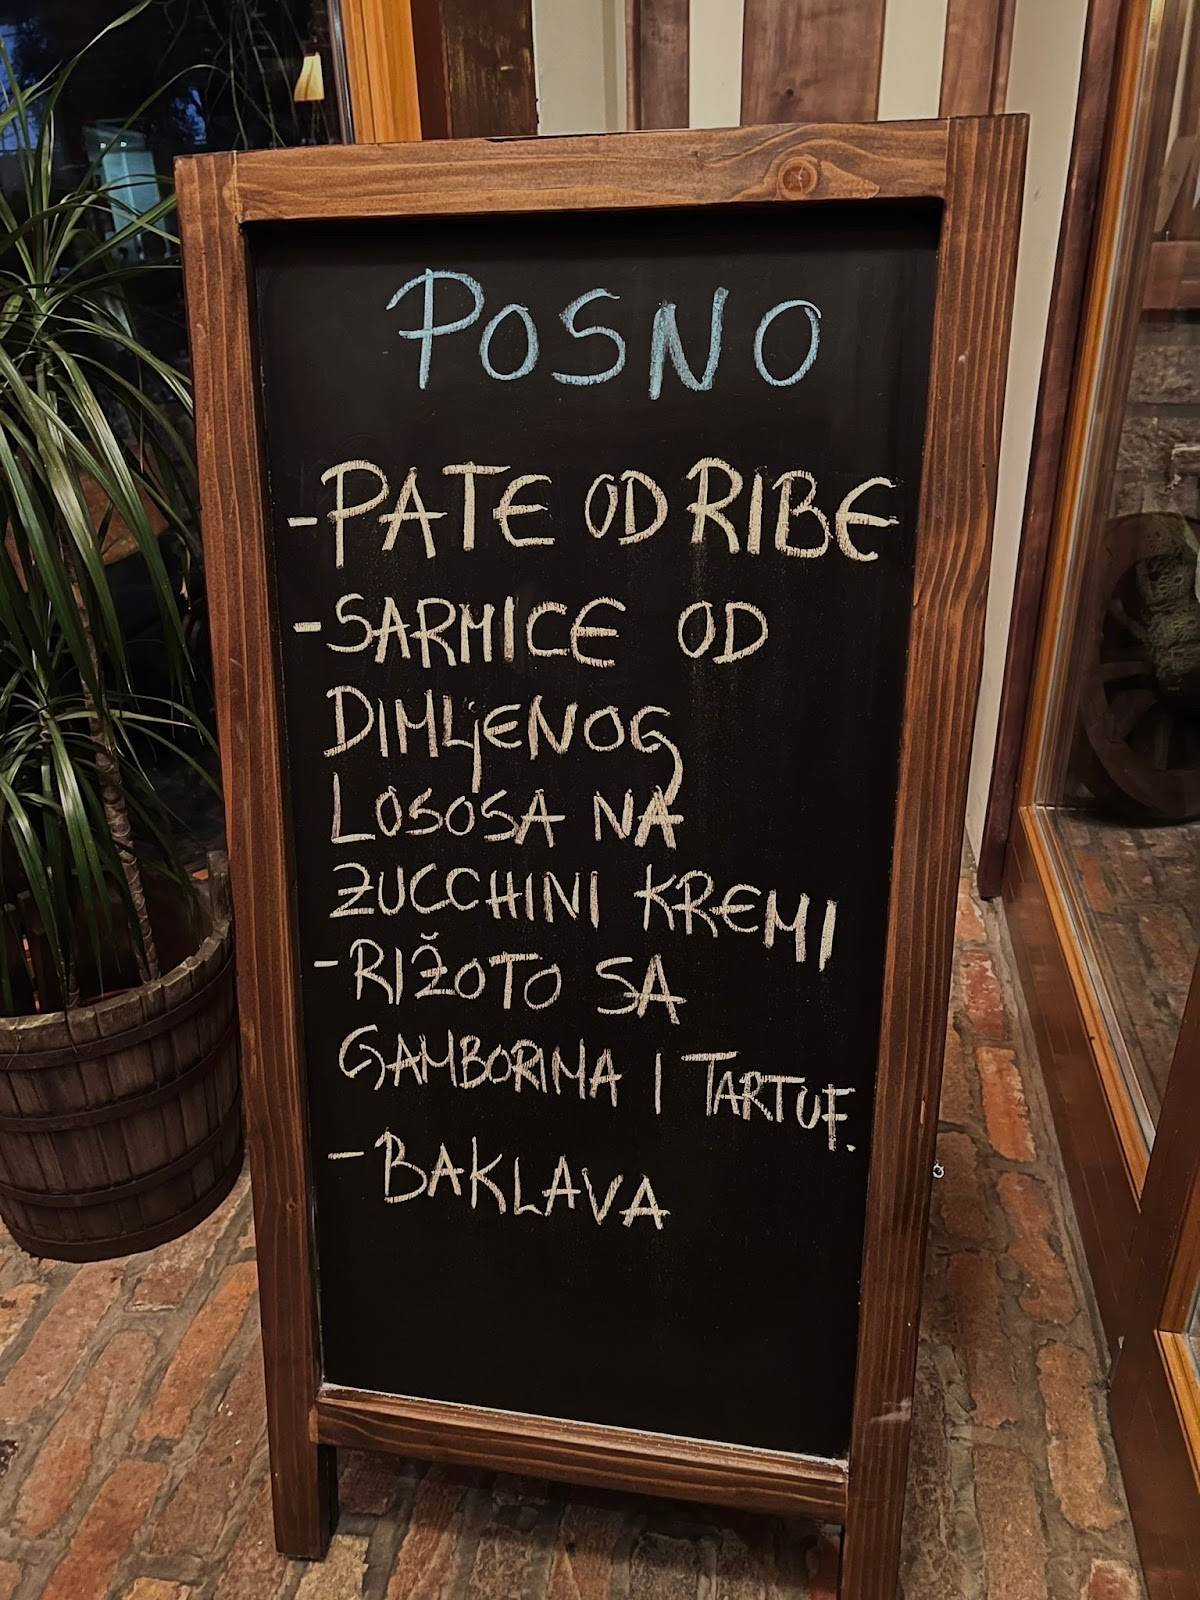 POSNO
-PATE OD RIBE
-SARMICE OD
DIMLJENOG
LOSOSA NA
ZUCCHINI KREMI
-RIŽOTO SA
GAMBORIMA I TARTUF.
-BAKLAVA